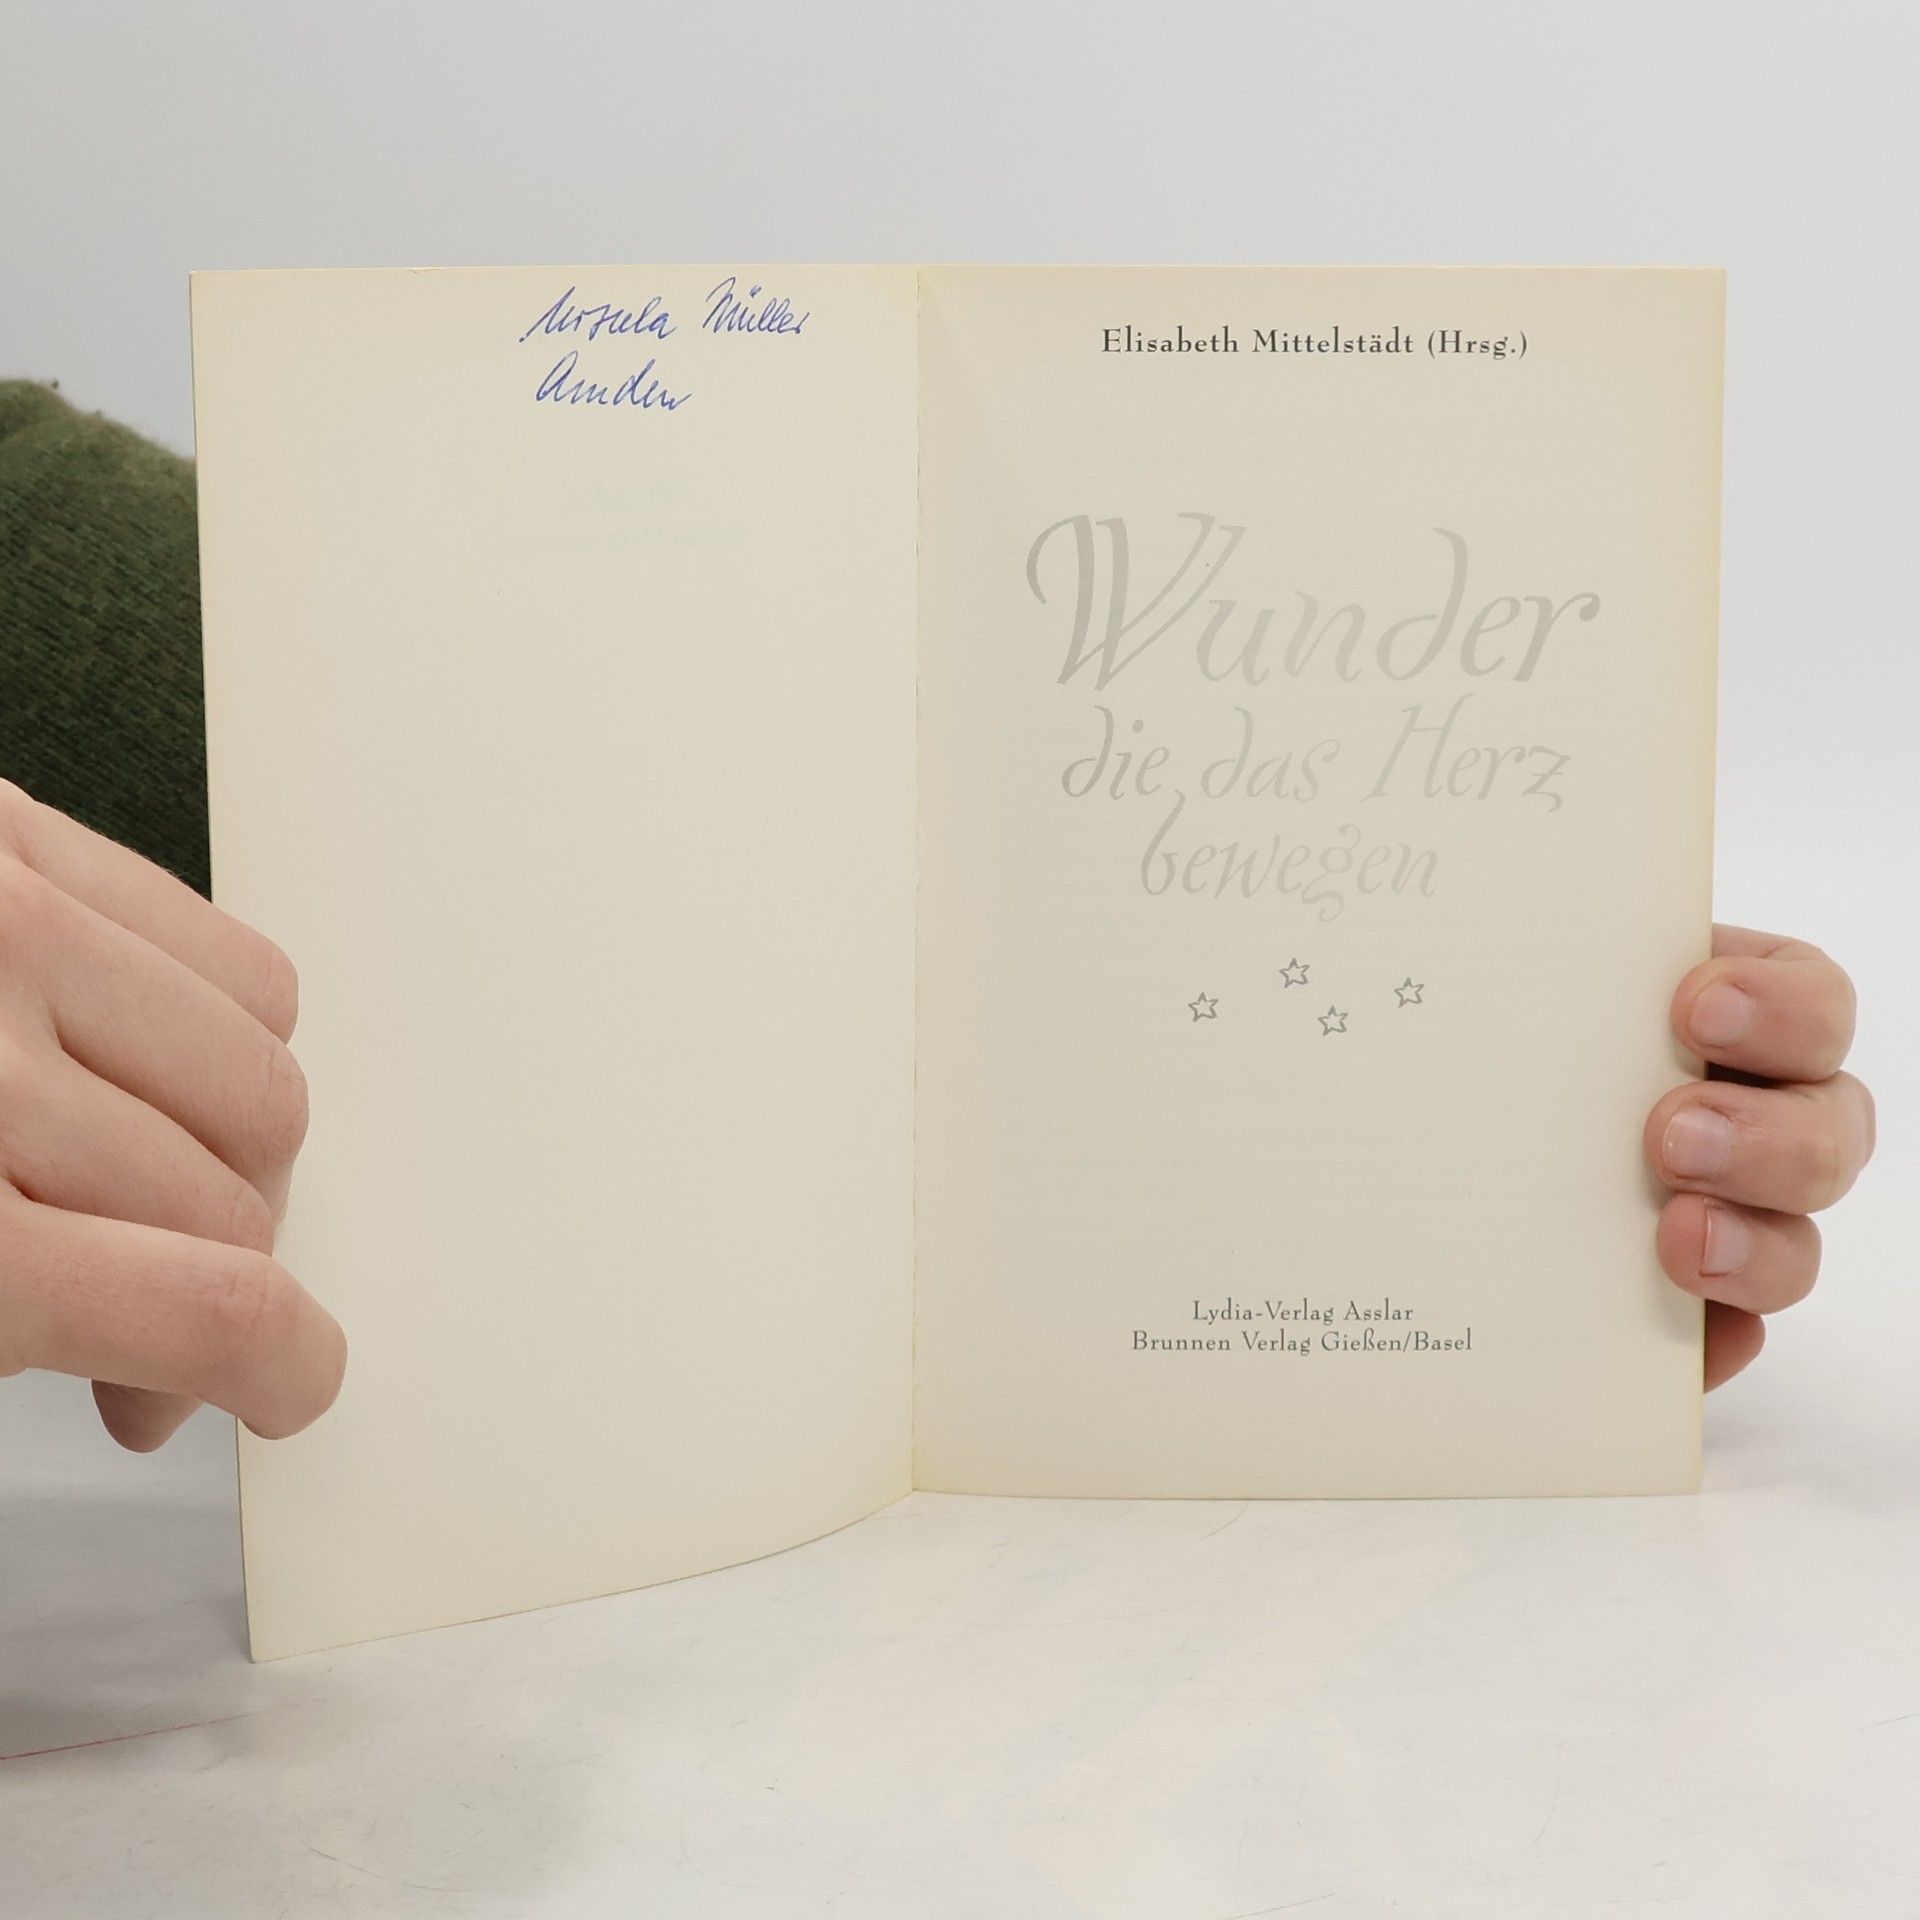 Ursula Müller
Amden
Elisabeth Mittelstädt (Hrsg.)
Wunder
die das Herz
bewegen
Lydia-Verlag Asslar
Brunnen Verlag Gießen/Basel